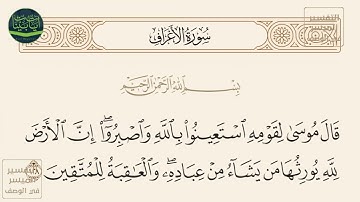 سُورَةُ الأَعْرَافِ
التفسير
الميسر
بِسْمِ اللَّهِ الرَّحْمَٰنِ الرَّحِيمِ
قَالَ مُوسَىٰ لِقَوْمِهِ ٱسْتَعِينُوا۟ بِٱللَّهِ وَٱصْبِرُوٓا۟ۖ إِنَّ ٱلْأَرْضَ
لِلَّهِ يُورِثُهَا مَن يَشَآءُ مِنْ عِبَادِهِۦۖ وَٱلْعَـٰقِبَةُ لِلْمُتَّقِينَ
التفسير
الميسر
في الوصف